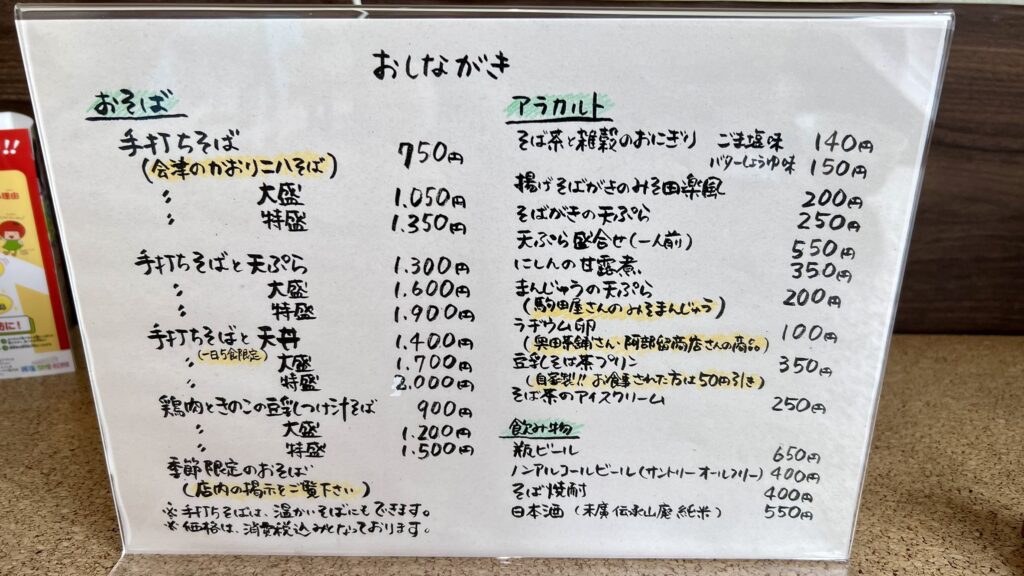 おしながき
おそば
手打ちそば 750円
(会津のかおり二八そば)
〃 大盛 1.050円
〃 特盛 1.350円
手打ちそばと天ぷら 1.300円
〃 大盛 1.600円
〃 特盛 1.900円
手打ちそばと天丼 1.400円
(一日5食限定)
〃 大盛 1.700円
〃 特盛 2.000円
鶏肉ときのこの豆乳つけ汁そば 900円
〃 大盛 1.200円
〃 特盛 1.500円
季節限定のおそば
(店内の掲示をご覧下さい)
※手打ちそばは、温かいそばにもできます。
※価格は、消費税込みとなっております。
アラカルト
そば茶と雑穀のおにぎり ごま塩味 140円
バターしょうゆ味 150円
揚げそばがきのみそ田楽風 200円
そばがきの天ぷら 250円
天ぷら盛合せ(一人前) 550円
にしんの甘露煮 350円
まんじゅうの天ぷら 200円
(駒田屋さんのみそまんじゅう)
ラヂウム卵 100円
(奥田茶舗さん・阿部留商店さんの商品)
豆乳そば茶プリン 350円
(自家製!! お食事された方は50円引き)
そば茶のアイスクリーム 250円
飲み物
瓶ビール 650円
ノンアルコールビール(サントリーオールフリー) 400円
そば焼酎 400円
日本酒(末廣伝承山廃純米) 550円
!!
理由
に!